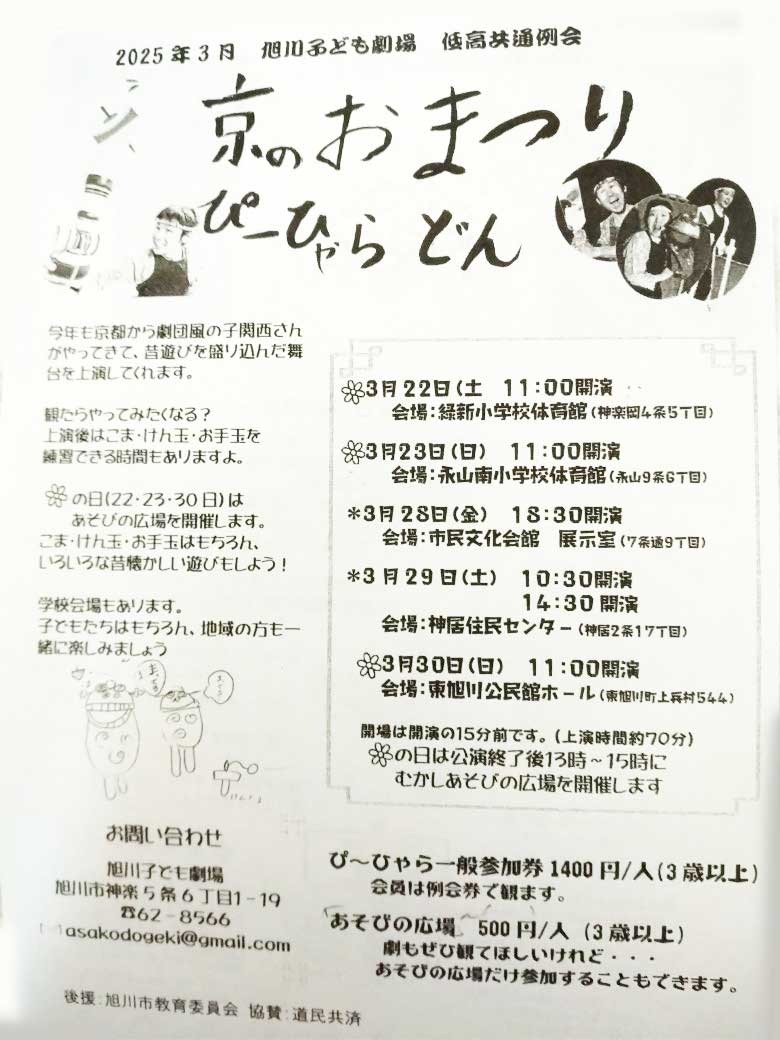 2025年3月 旭川子ども劇場 低高共通例会
京のおまつり
ぴーひゃら どん
今年も京都から劇団風の子関西さん
がやってきて、昔遊びを盛り込んだ舞
台を上演してくれます。
観たらやってみたくなる?
上演後はこま・けん玉・お手玉を
練習できる時間もありますよ。
の日(22・23・30日)は
あそびの広場を開催します。
こま・けん玉・お手玉はもちろん、
いろいろな昔懐かしい遊びもしよう!
学校会場もあります。
子どもたちはもちろん、地域の方も一
緒に楽しみましょう
3月22日(土 11:00開演
会場:緑新小学校体育館(神楽岡4条5丁目)
3月23日(日) 11:00開演
会場:永山南小学校体育館(永山9条6丁目)
*3月28日(金) 18:30開演
会場:市民文化会館 展示室(7条通9丁目)
*3月29日(土) 10:30開演
14:30開演
会場:神居住民センター(神居2条17丁目)
3月30日(日) 11:00開演
会場:東旭川公民館ホール(東旭川町上兵村544)
開場は開演の15分前です。(上演時間約70分)
の日は公演終了後13時~15時に
むかしあそびの広場を開催します
お問い合わせ
旭川子ども劇場
旭川市神楽5条6丁目1-19
☎62-8566
asakodogeki@gmail.com
ぴ~ひゃら一般参加券1400円/人(3歳以上)
会員は例会券で観ます。
あそびの広場 500円/人 (3歳以上)
劇もぜひ観てほしいけれど・・・
あそびの広場だけ参加することもできます。
後援:旭川市教育委員会 協賛:道民共済